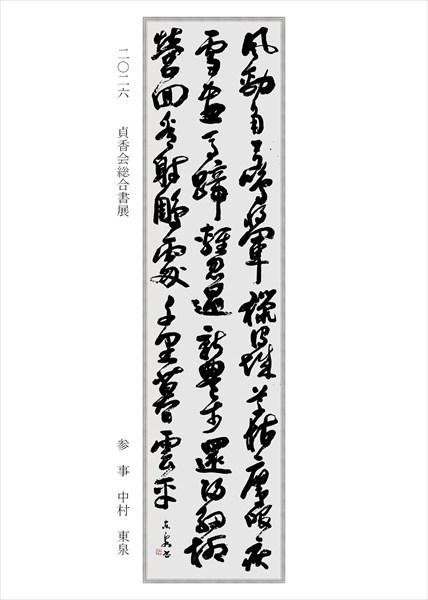 風勁角弓鳴將軍獵渭城草枯鷹眼疾
雪盡馬蹄輕忽過新豐市還歸細柳
營回看射鵰處千里暮雲平
東泉書
二〇二六　貞香会総合書展
参事　中村　東泉